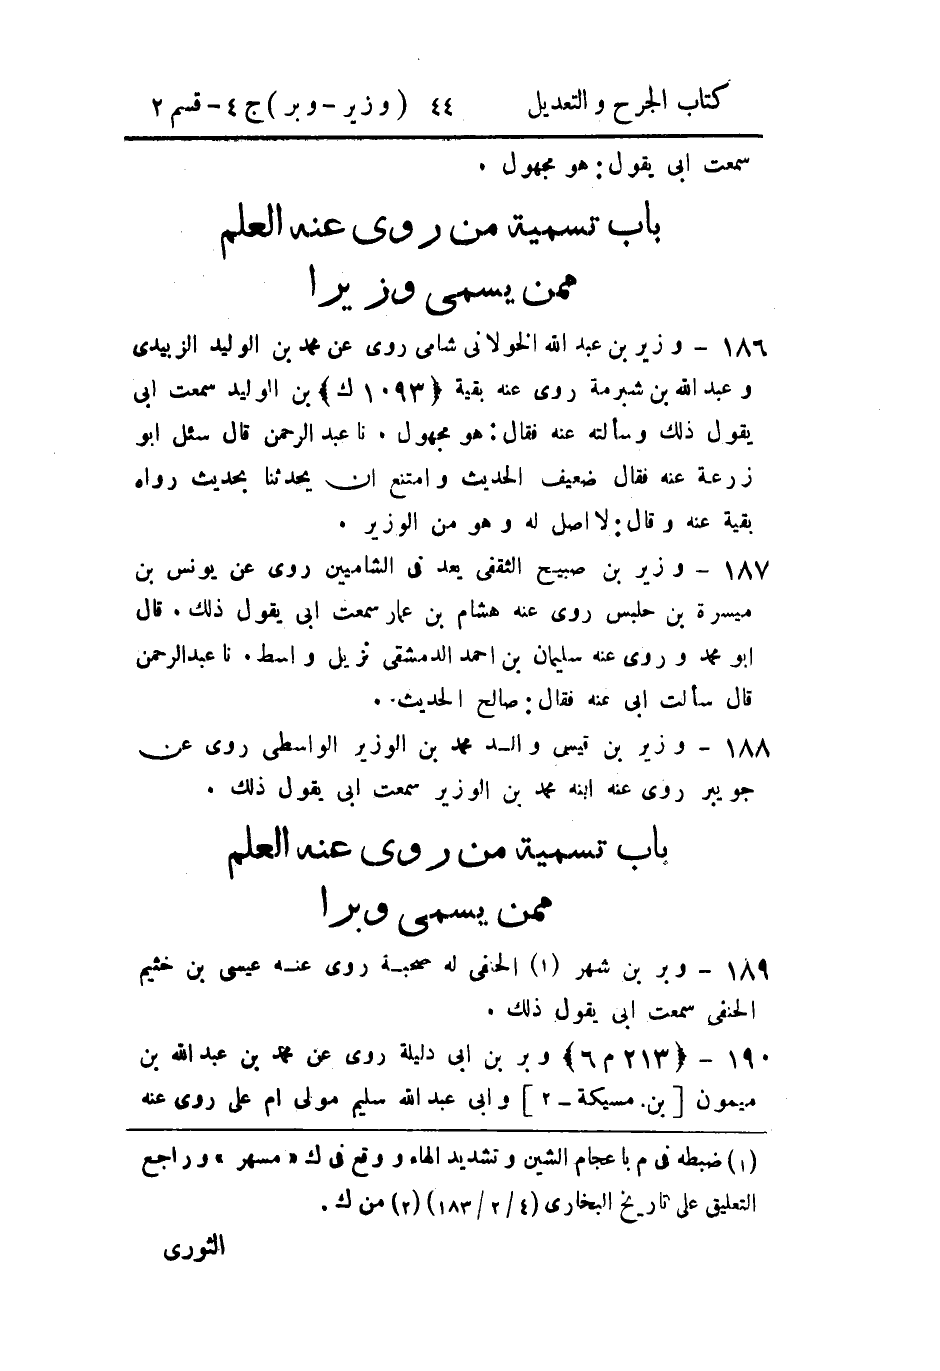 كتاب الجرح والتعديل ٤٤ (وزير - وبر) ج ٤ - قسم ٢
سمعت ابى يقول: هو مجهول .
باب تسمية من روى عنه العلم
ممن يسمى وزيرا
١٨٦ - وزير بن عبد الله الخولانى شامى روى عن محمد بن الوليد الزبيدى
وعبد الله بن شبرمة روى عنه بقية ﴿١٠٩٣ ك﴾ بن الوليد سمعت ابى
يقول ذلك وسألته عنه فقال: هو مجهول . نا عبد الرحمن قال سئل ابو
زرعة عنه فقال ضعيف الحديث وامتنع ان يحدثنا بحديث رواه
بقية عنه وقال: لا اصل له وهو من الوزير .
١٨٧ - وزير بن صبيح الثقفى يعد فى الشاميين روى عن يونس بن
ميسرة بن حلبس روى عنه هشام بن عمار سمعت ابى يقول ذلك . قال
ابو محمد وروى عنه سليمان بن احمد الدمشقى نزيل واسط . نا عبدالرحمن
قال سألت ابى عنه فقال: صالح الحديث .
١٨٨ - وزير بن قيس والد محمد بن الوزير الواسطى روى عن
جويبر روى عنه ابنه محمد بن الوزير سمعت ابى يقول ذلك .
باب تسمية من روى عنه العلم
ممن يسمى وبرا
١٨٩ - وبر بن شهر (١) الحنفى له صحبة روى عنه عيسى بن خثيم
الحنفى سمعت ابى يقول ذلك .
١٩٠ - ﴿٢١٣ م ٦﴾ وبر بن ابى دليلة روى عن محمد بن عبد الله بن
ميمون [بن مسيكة - ٢] وابى عبد الله سليم مولى ام على روى عنه
(١) ضبطه فى م باعجام الشين وتشديد الهاء ووقع فى ك «مسهر» وراجع
التعليق على تاريخ البخارى (٤/٢/١٨٣) (٢) من ك .
الثورى